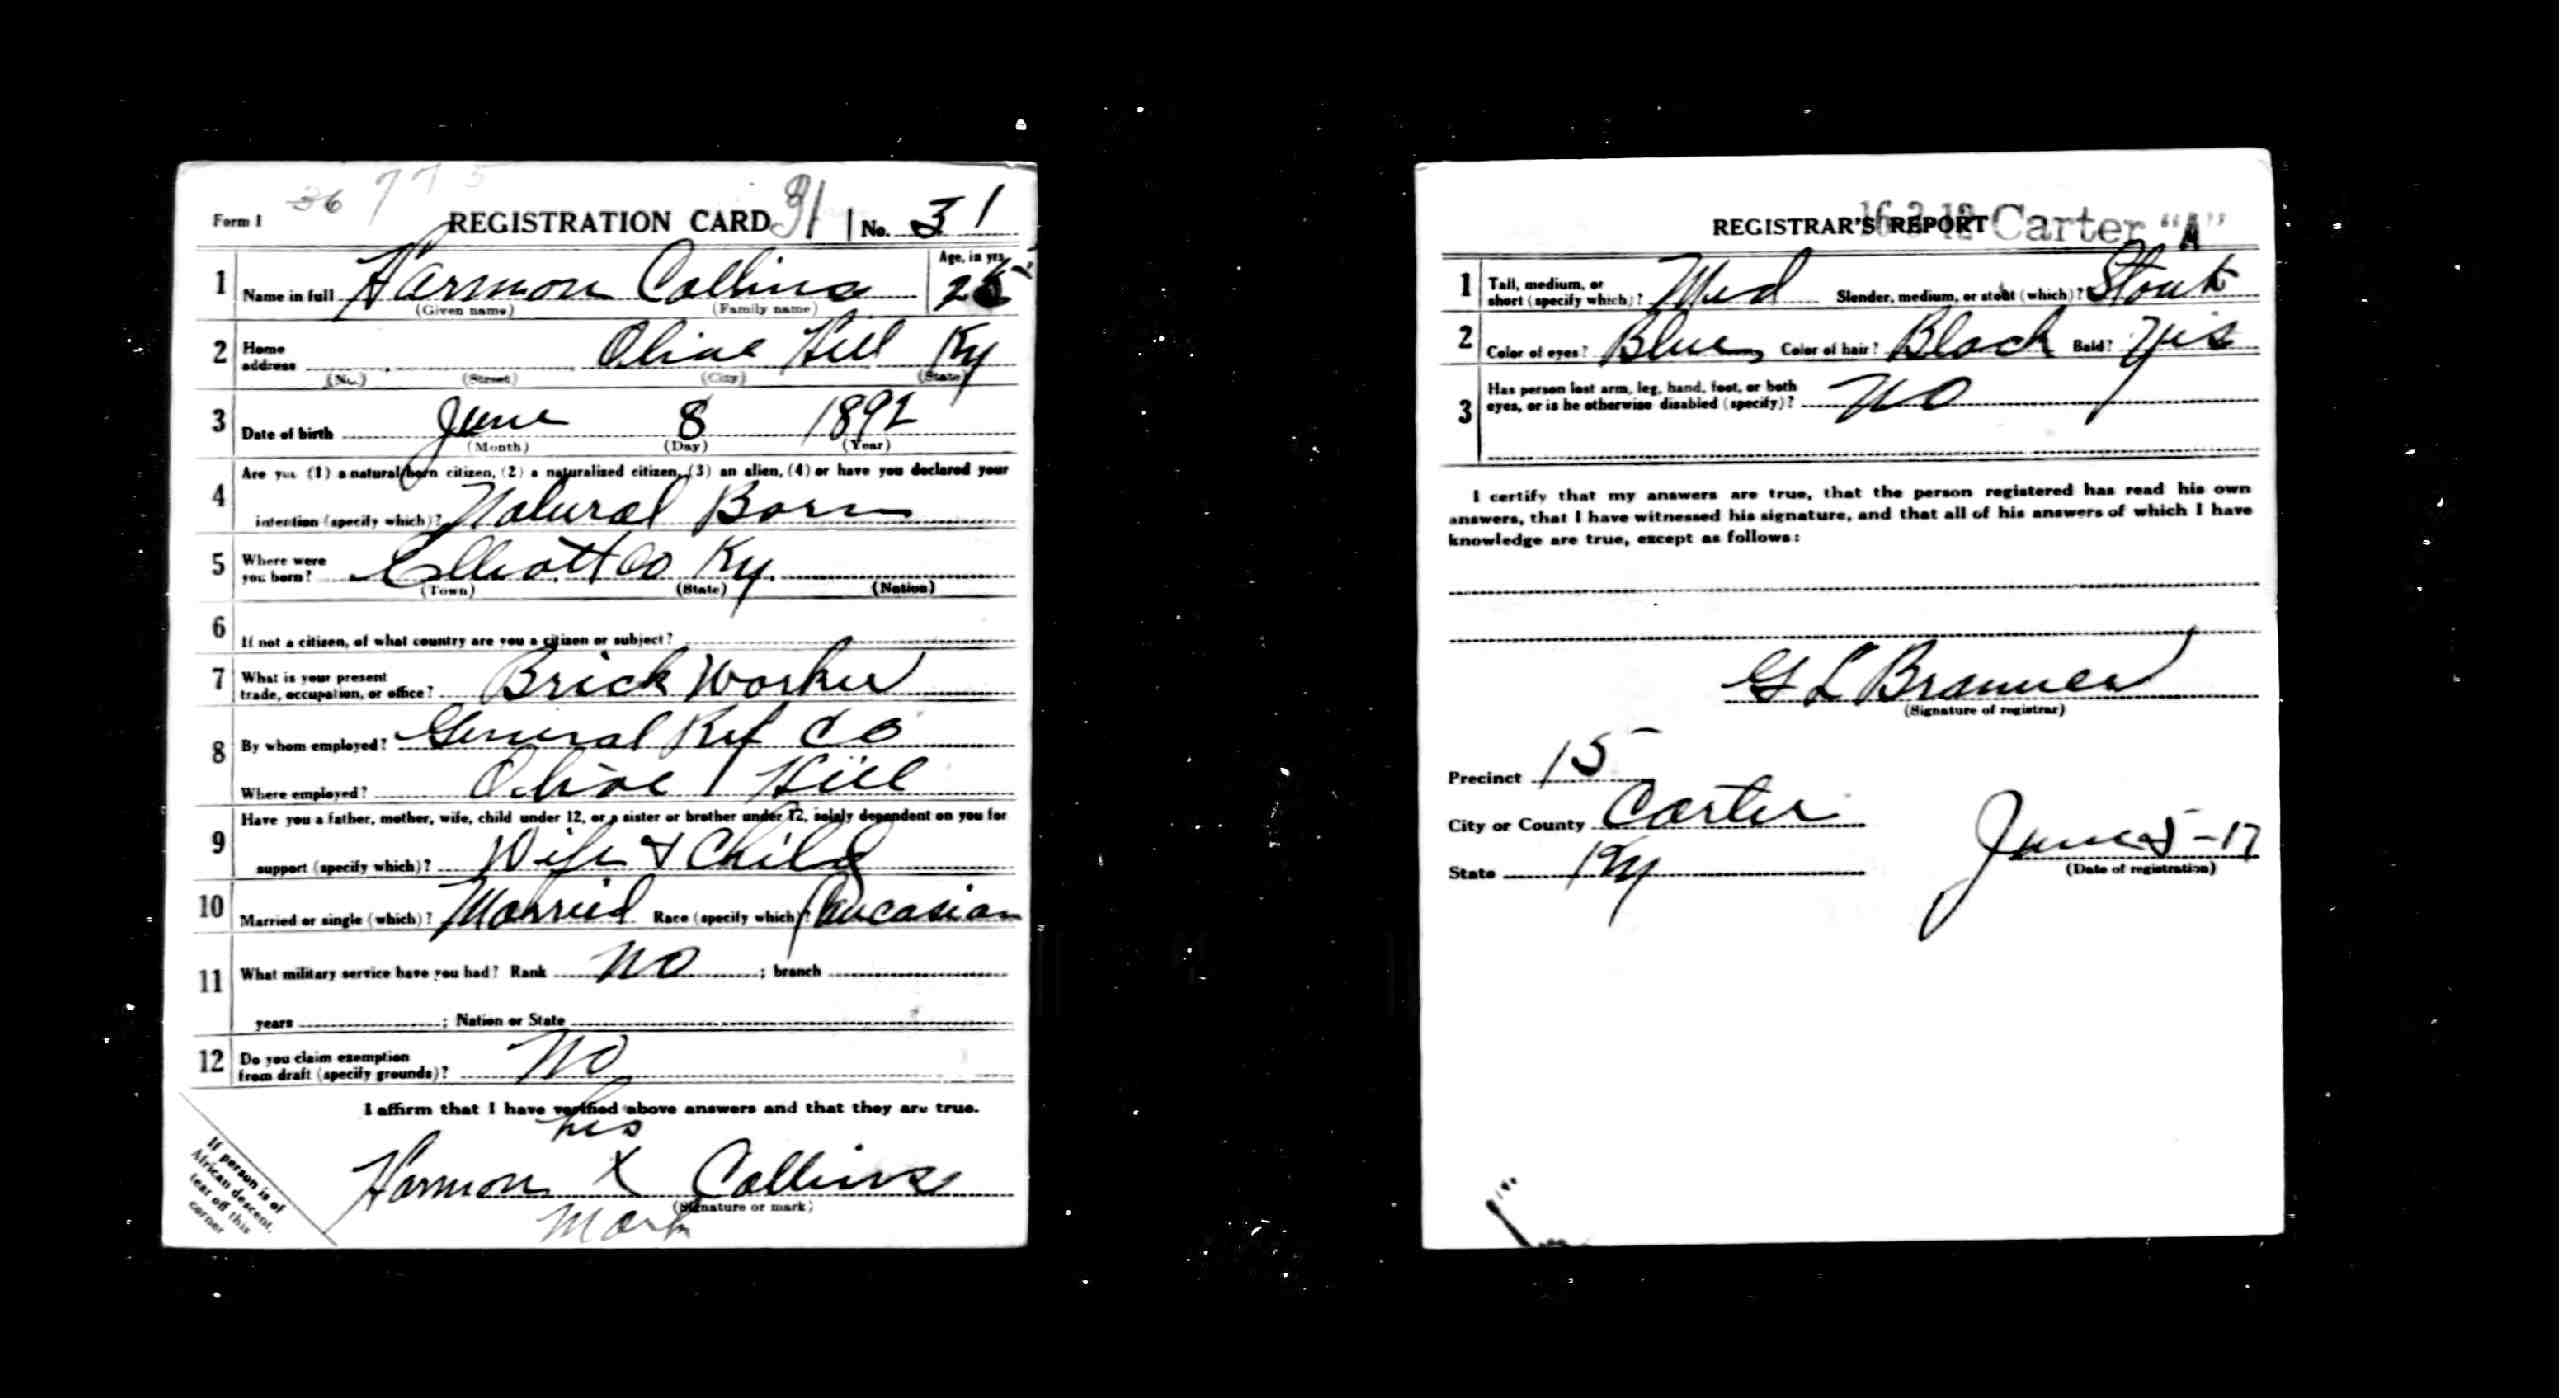 36 775
Form 1 REGISTRATION CARD 31 No. 31
1 Name in full Harmon Collins Age, in yrs. 25
(Given name) (Family name)
2 Home address Olive Hill Ky
(No.) (Street) (City) (State)
3 Date of birth June 8 1892
(Month) (Day) (Year)
4 Are you (1) a natural born citizen, (2) a naturalized citizen, (3) an alien, (4) or have you declared your
intention (specify which)? Natural Born
5 Where were you born? Elliott Co Ky.
(Town) (State) (Nation)
6 If not a citizen, of what country are you a citizen or subject?
7 What is your present trade, occupation, or office? Brick Worker
8 By whom employed? General Ref Co
Where employed? Olive Hill
9 Have you a father, mother, wife, child under 12, or a sister or brother under 12, solely dependent on you for
support (specify which)? Wife & Child
10 Married or single (which)? Married Race (specify which)? Caucasian
11 What military service have you had? Rank no ; branch
years ; Nation or State
12 Do you claim exemption from draft (specify grounds)? No
I affirm that I have verified above answers and that they are true.
his
Harmon X Collins
(Signature or mark)
mark
If person is of
African descent,
tear off this
corner
REGISTRAR'S REPORT Carter "A"
1 Tall, medium, or short (specify which)? Med Slender, medium, or stout (which)? Stout
2 Color of eyes? Blue Color of hair? Black Bald? Yis
3 Has person lost arm, leg, hand, foot, or both
eyes, or is he otherwise disabled (specify)? no
I certify that my answers are true, that the person registered has read his own
answers, that I have witnessed his signature, and that all of his answers of which I have
knowledge are true, except as follows:
G L Brammer
(Signature of registrar)
Precinct 15
City or County Carter
State Ky June 5-17
(Date of registration)